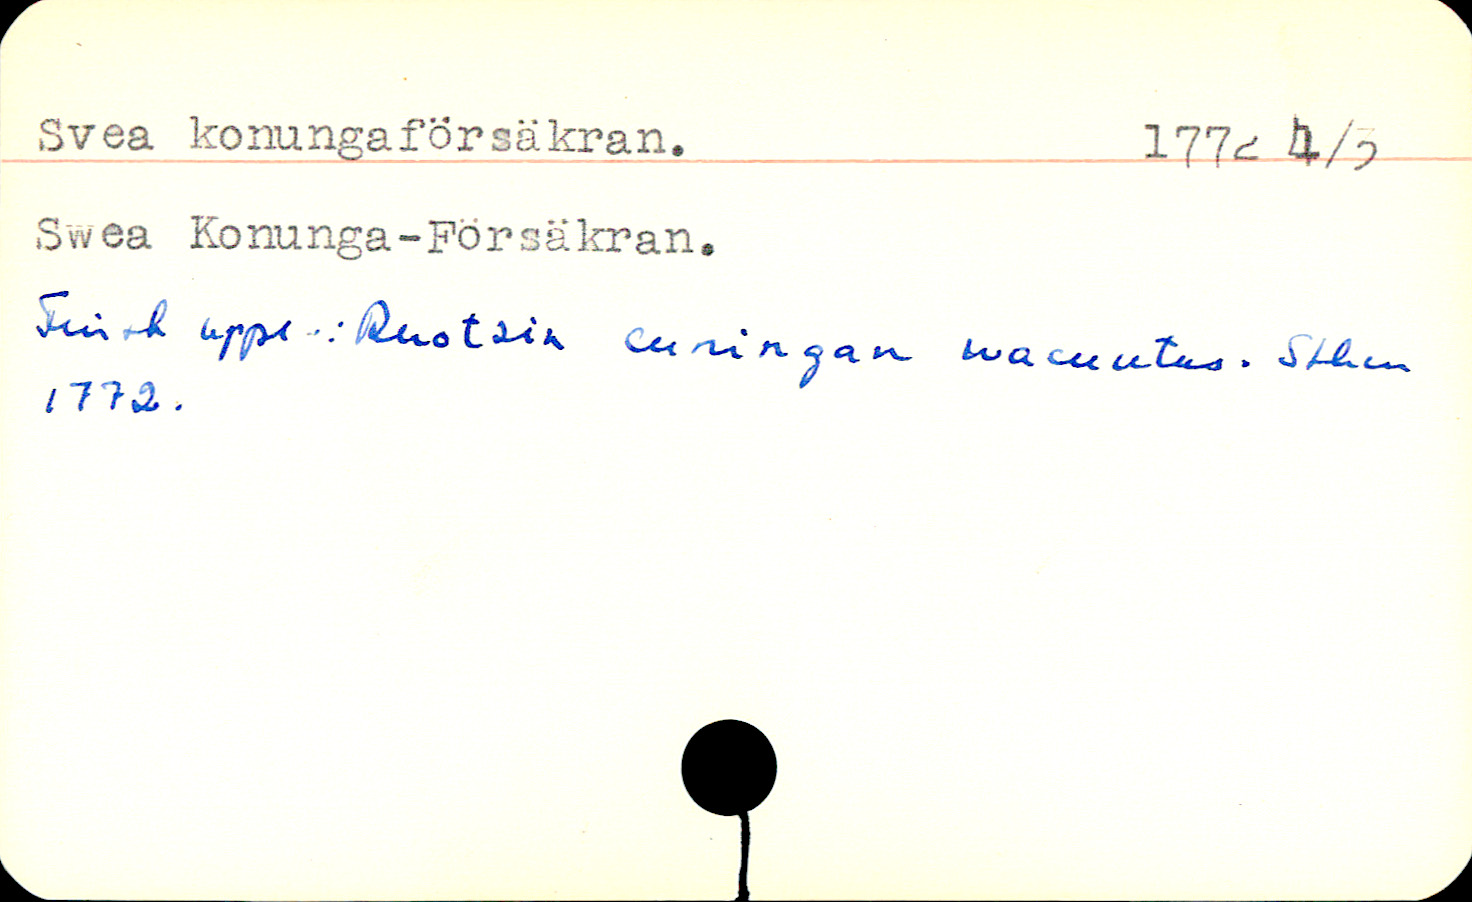 Svea konungaförsäkran. 1772 4/3
Swea Konunga-Försäkran.
Finsk uppl.: Ruotsin cuningan wacuutus. Sthlm
1772.